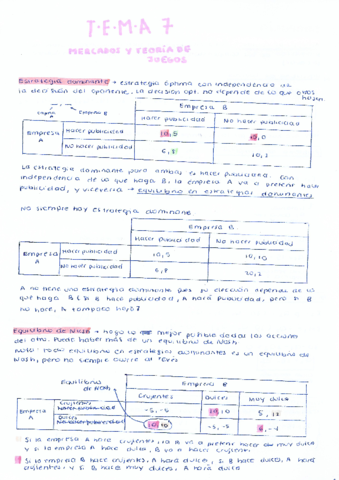 TEMA 7
MERCADOS Y TEORÍA DE
JUEGOS
Estrategia dominante → estrategia óptima con independencia de
la decisión del oponente. La decisión opt. no depende de lo que otros
hacen.
Empresa B
Hacer publicidad
No hacer publicidad
Empresa A
Hacer publicidad
10, 5
, 0
No hacer publicidad
6, 8
10, 2
La estrategia dominante para ambas es hacer publicidad. Con
independencia de lo que haga B, la empresa A va a preferir hacer
publicidad, y viceversa → equilibrio en estrategias dominantes
No siempre hay estrategia dominante
Empresa B
Hacer publicidad
No hacer publicidad
Empresa A
Hacer publicidad
10, 5
No hacer publicidad
6, 8
20, 2
A no tiene una estrategia dominante pues su elección depende de lo
que haga B (si B hace publicidad, A hará publicidad, pero si B
no hace, A tampoco
Equilibrio de Nash → hago lo mejor posible dadas las acciones
del otro. Puede haber más de un equilibrio de Nash
Nota: todo equilibrio en estrategias dominantes es un equilibrio de
Nash, pero no siempre ocurre al revés
Equilibrio de Nash
Empresa B
Crujientes
Dulces
Muy dulce
Empresa A
Crujientes
-5, -5
10, 10
5, 12
Dulces
10, 10
-5, -5
Si la empresa A hace crujientes, la B va a preferir hacer muy dulce
y si la empresa A hace dulce, B va a hacer crujientes
Si B hace crujientes, A hará dulce, si B hace dulces, A hará
crujientes y si B hace muy dulces, A hará dulce